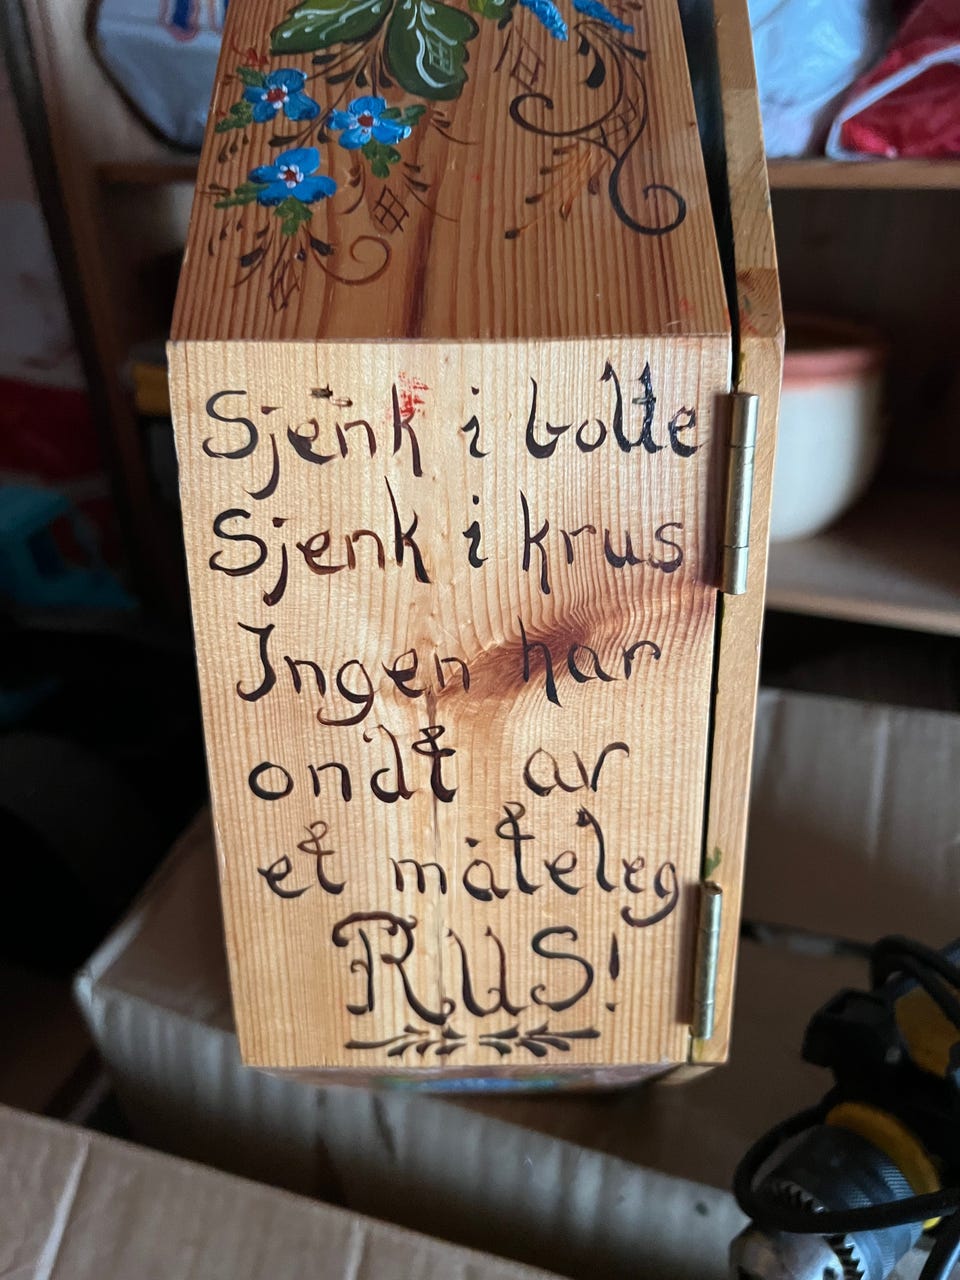 Sjenk i bolle
Sjenk i krus
Ingen har
ondt av
et måteleg
RUS!